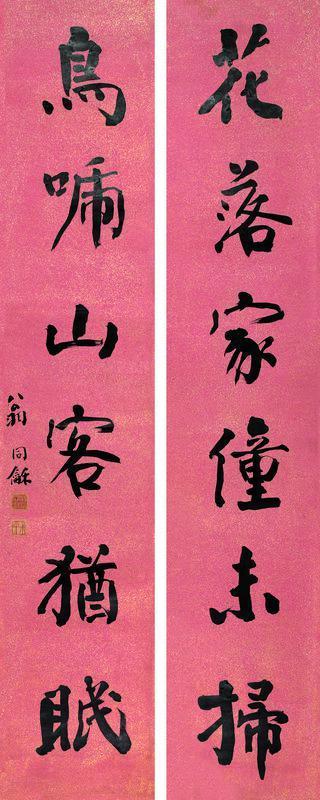 花落家僮未掃
鳥啼山客猶眠
翁同龢